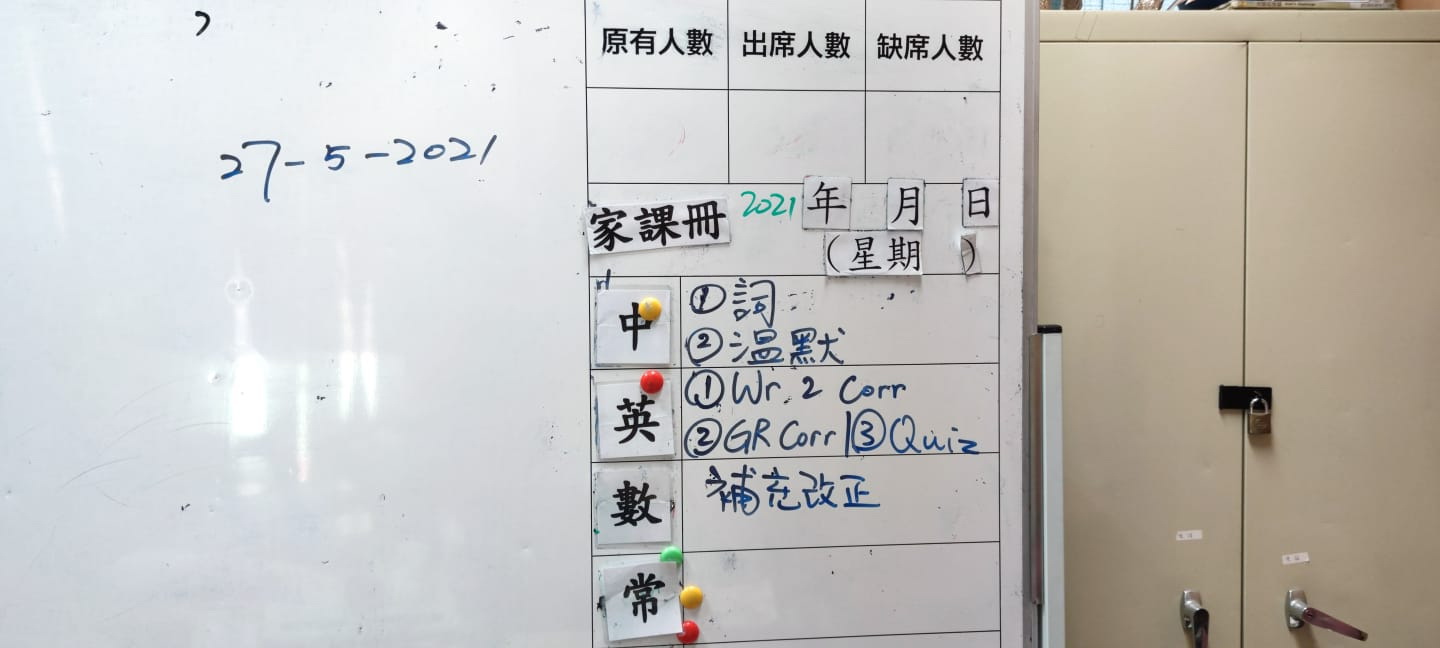 27-5-2021
原有人數 出席人數 缺席人數
家課冊 2021 年 月 日
(星期 )
中 ①詞
②溫默
英 ①Wr. 2 Corr
②GR Corr |③Quiz
數 補充改正
常